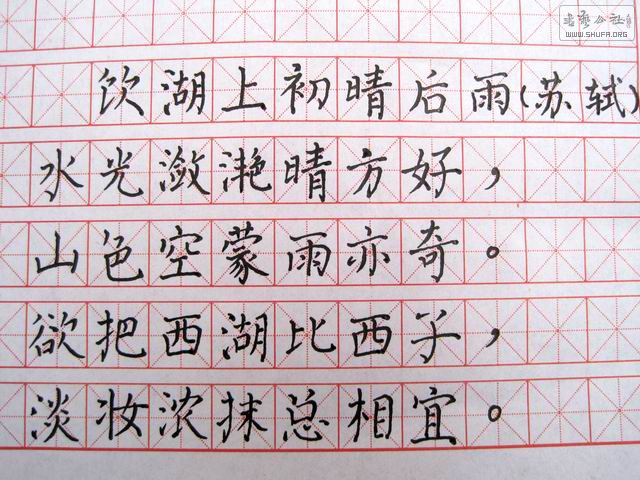 书艺公社
WWW.SHUFA.ORG
饮湖上初晴后雨(苏轼)
水光潋滟晴方好，
山色空蒙雨亦奇。
欲把西湖比西子，
淡妆浓抹总相宜。